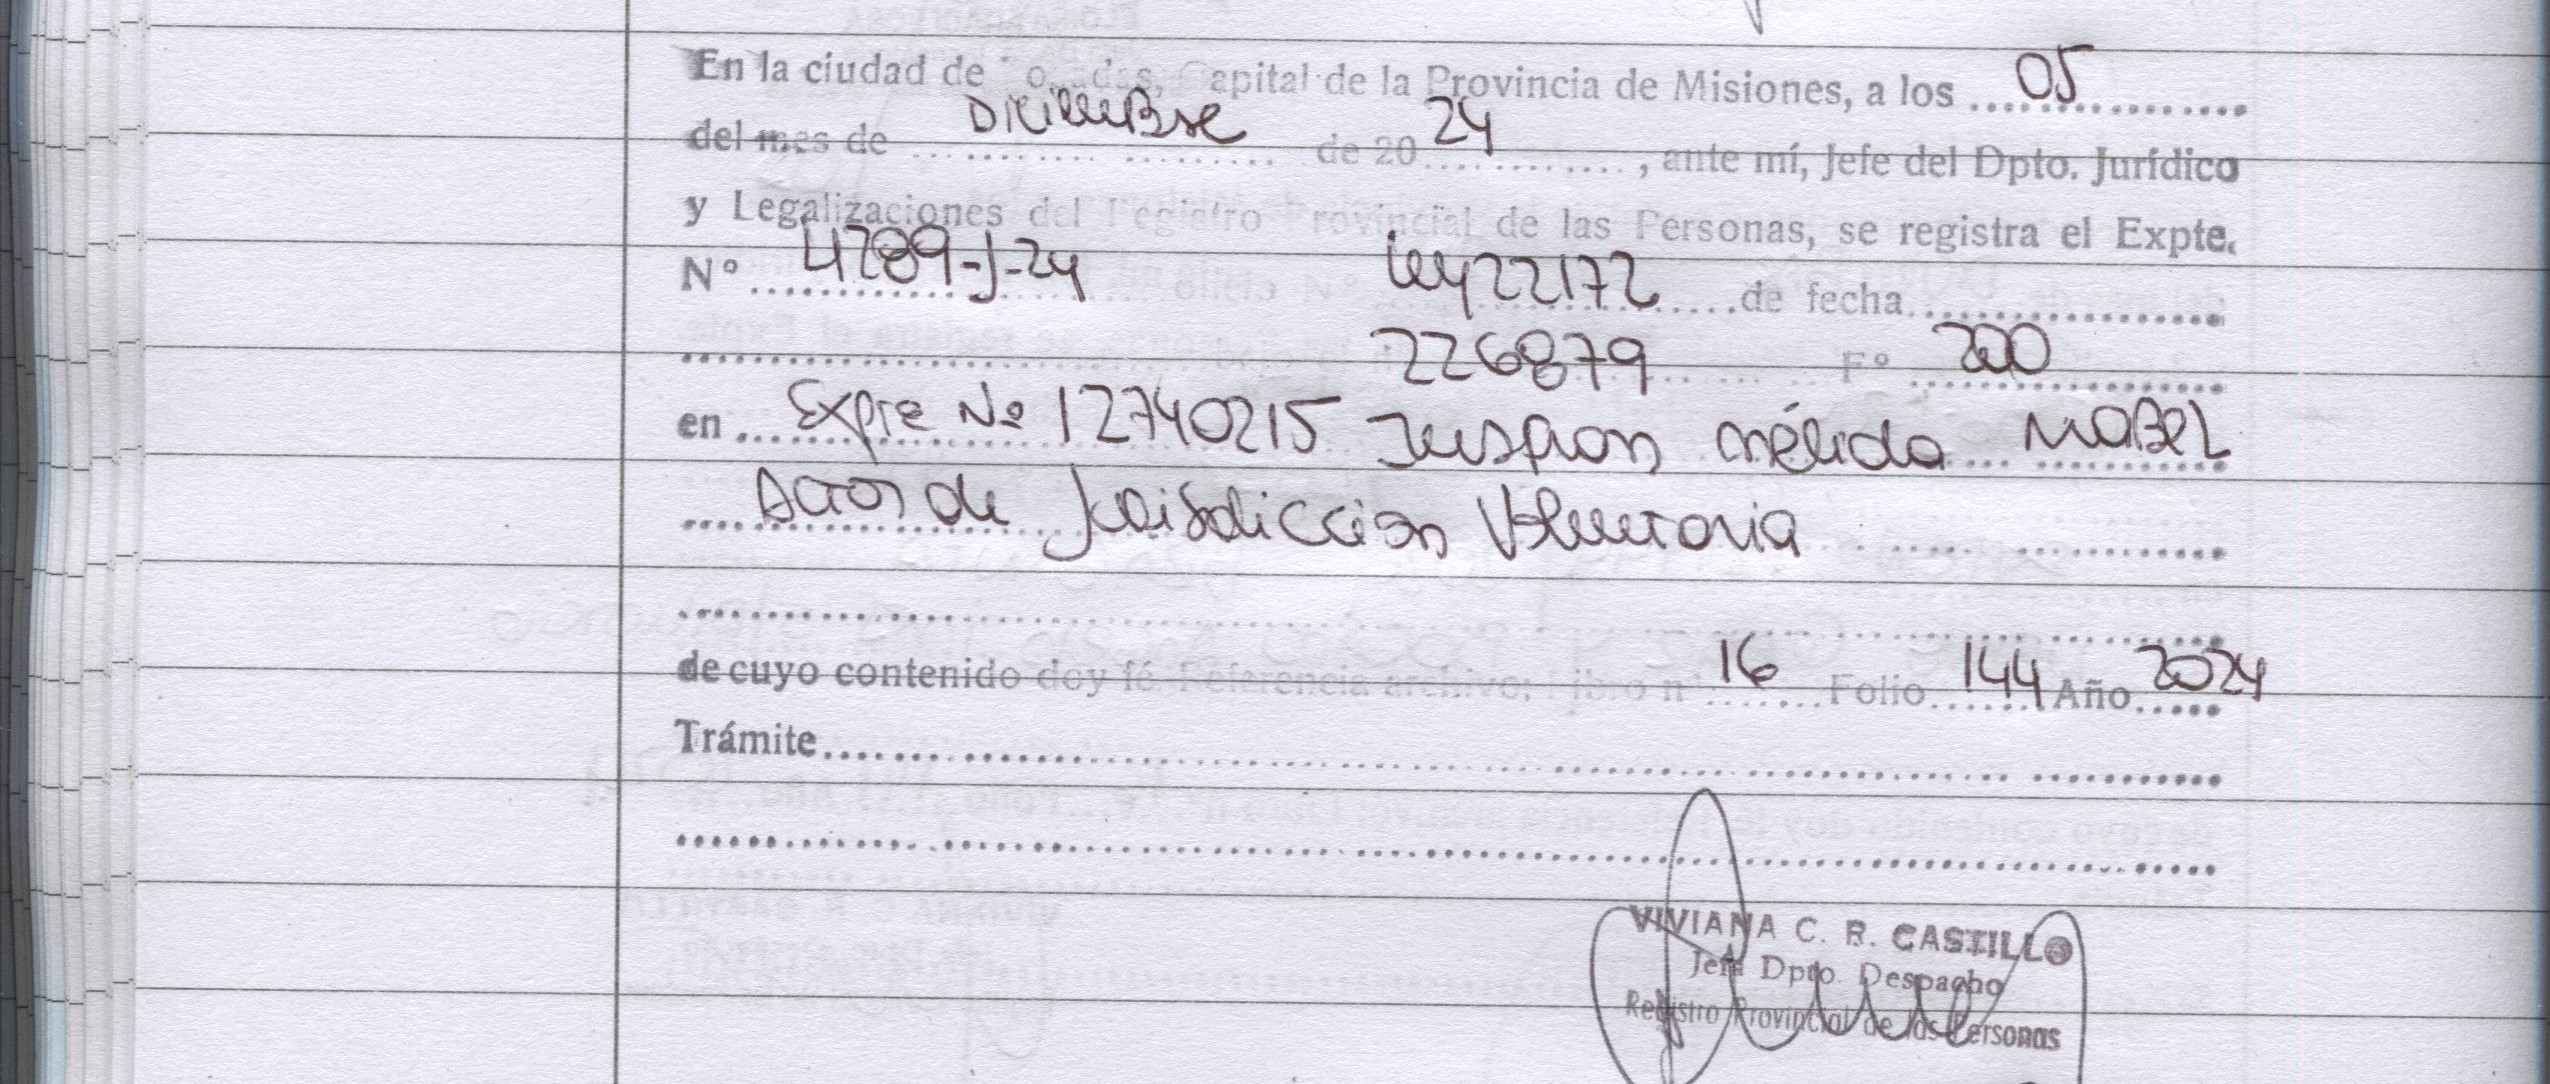 En la ciudad de Posadas, Capital de la Provincia de Misiones, a los 05
del mes de Diciembre de 20 24, ante mí, Jefe del Dpto. Jurídico
y Legalizaciones del Registro Provincial de las Personas, se registra el Expte.
Nº 4789-J-24 Ley 22172 de fecha
226879 Fº 200
en Expte Nº 12740215 Nélida MABEL
de Jurisdiccion Voluntaria
de cuyo contenido doy fé Referencia archivo: Libro nº 16 Folio 144 Año 2024
Trámite
VIVIANA C. R. CASTILLO
Jefa Dpto. Despacho
Registro Provincial de las Personas